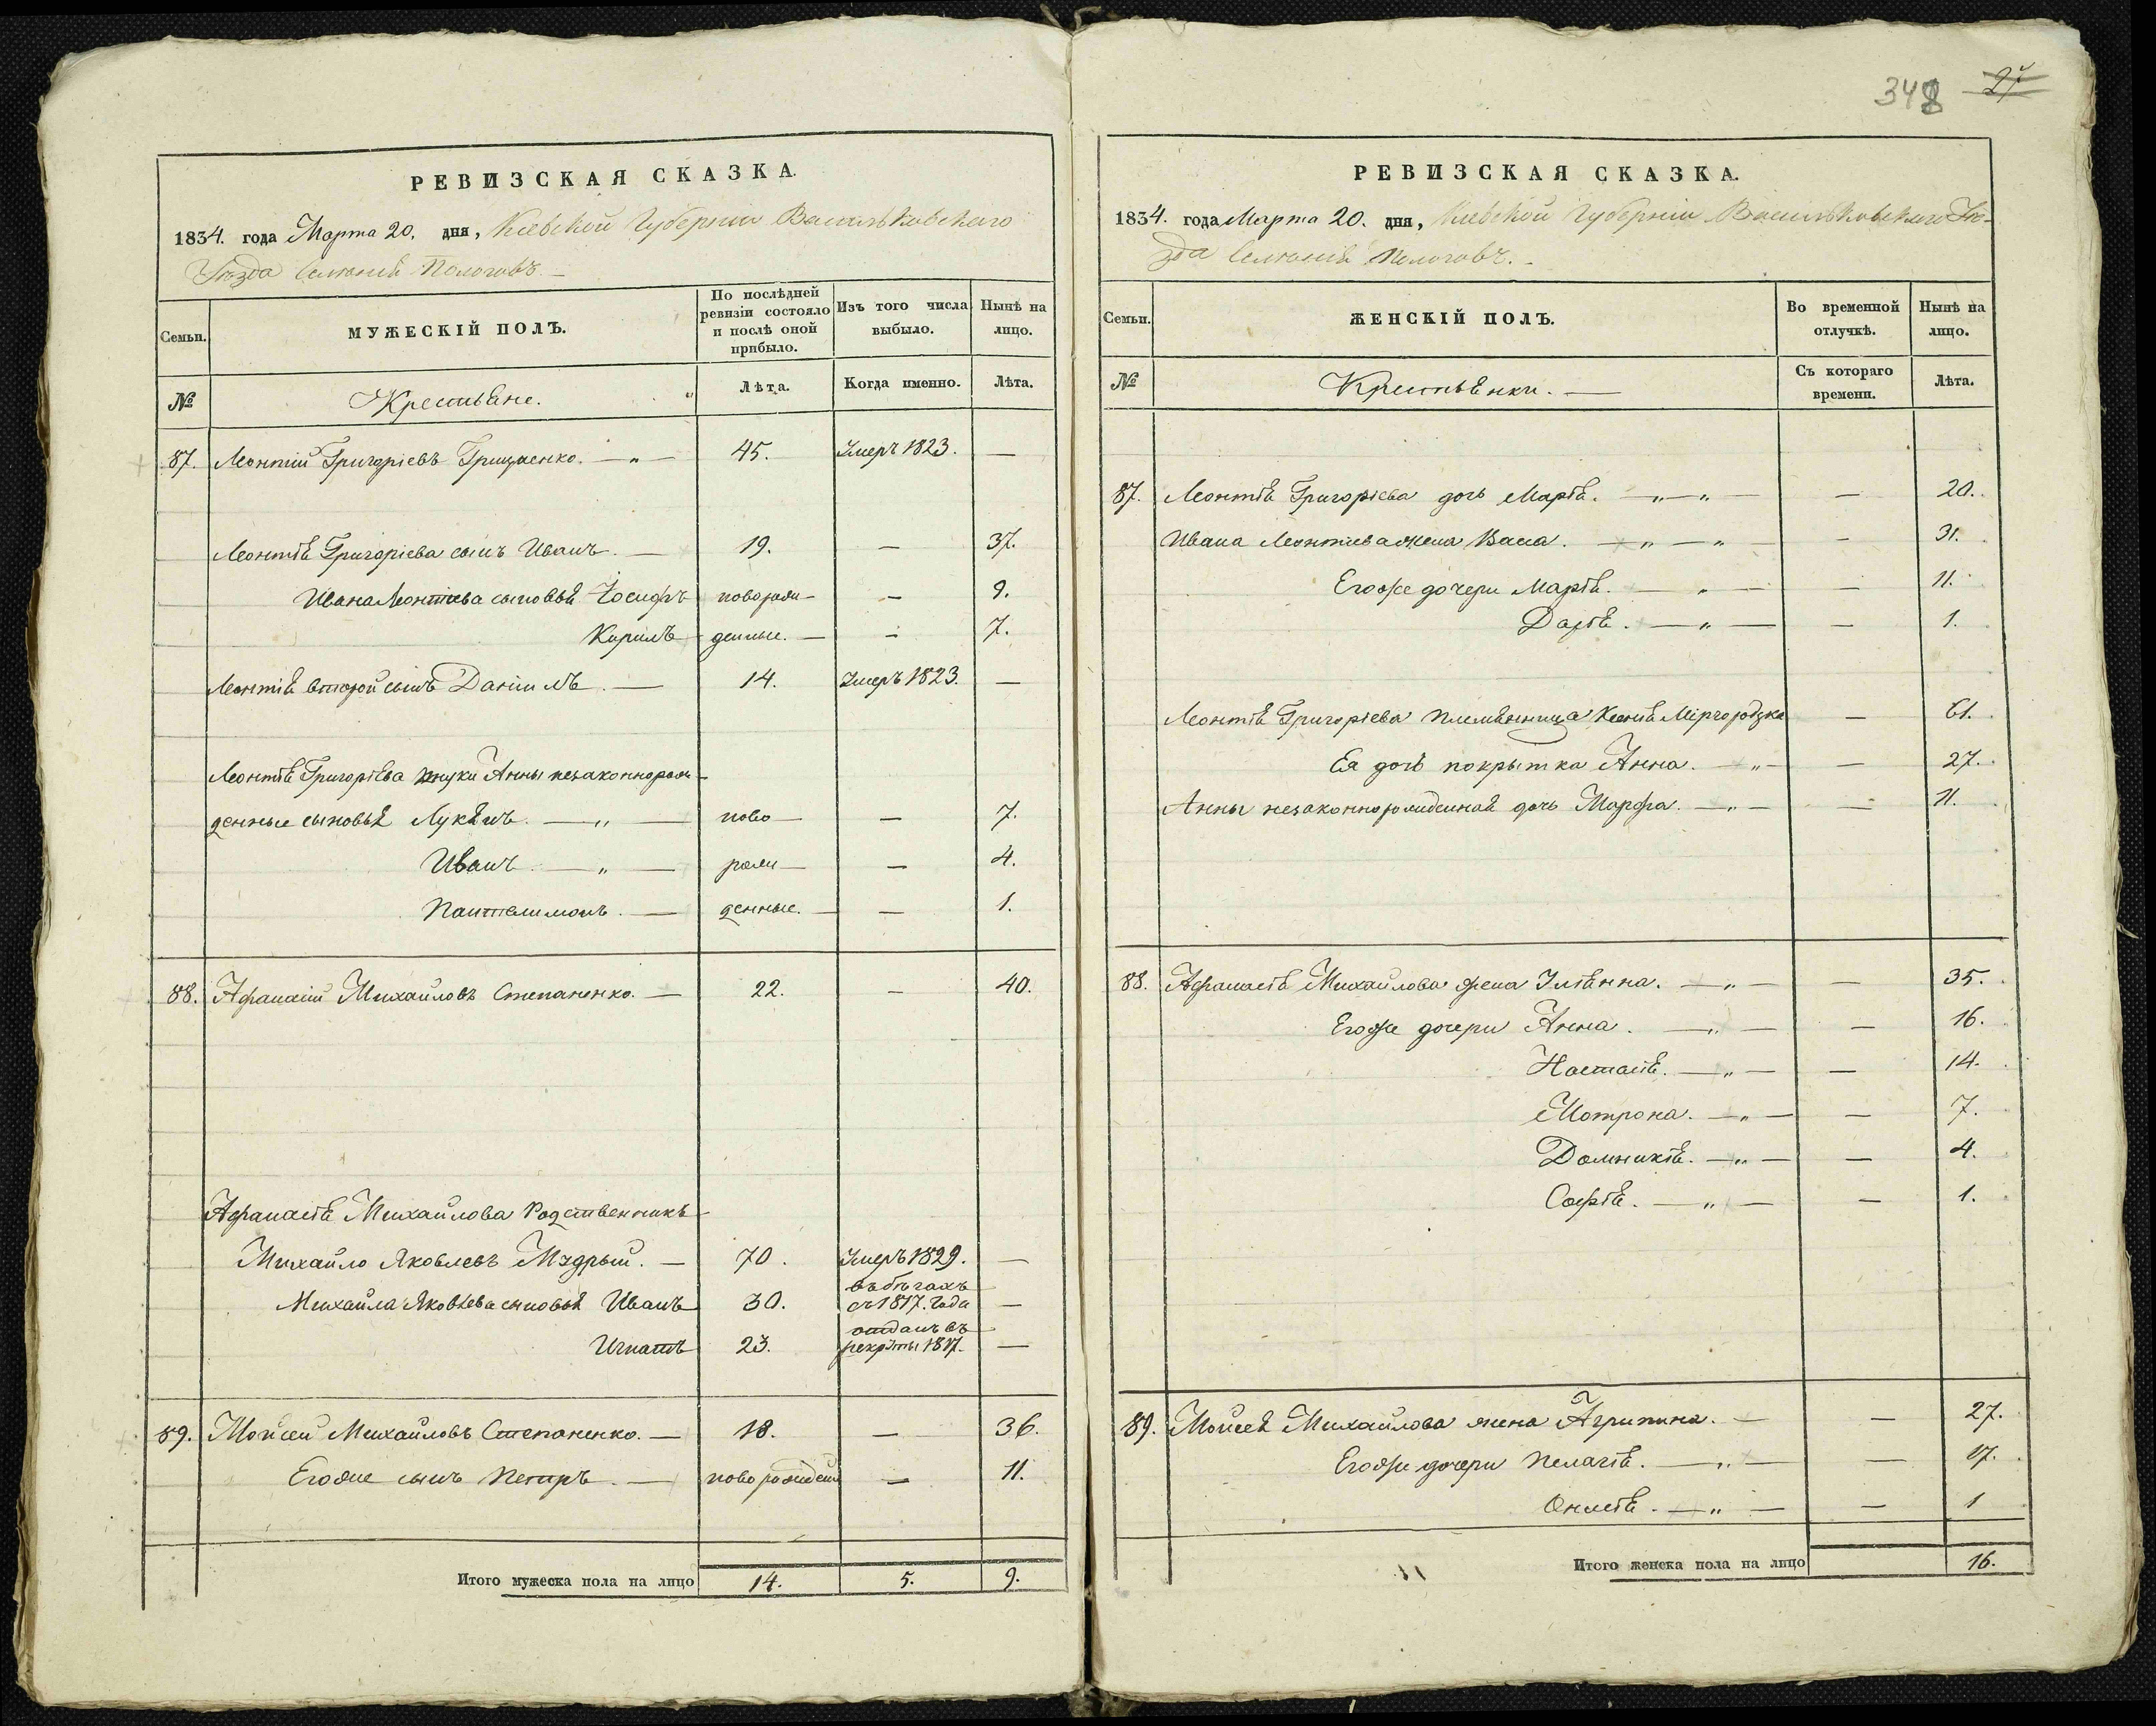 348 27
РЕВИЗСКАЯ СКАЗКА.
1834. года Марта 20. дня, Кіевской Губерніи Васильковскаго
Уѣзда Селенія Пологовъ.
Семьи.
МУЖЕСКІЙ ПОЛЪ.
По послѣдней ревизіи состояло и послѣ оной прибыло.
Изъ того числа выбыло.
Нынѣ на лицо.
№
Крестьяне.
Лѣта.
Когда именно.
Лѣта.
87. Леонтій Григоріевъ Грищенко. — „ — 45. Умеръ 1823. —
Леонтія Григоріева сынъ Иванъ. — 19. — 37.
Ивана Леонтиева сыновья Іосифъ новорож- — 9.
Кирилъ денные. — — 7.
Леонтія второй сынъ Даніилъ. — 14. Умеръ 1823. —
Леонтія Григоріева внуки Анны незаконнорож-
денные сыновья Лукянъ. — „ — ново — — 7.
Иванъ. — „ — рож — — 4.
Пантелимонъ. — денные. — — 1.
88. Афанасій Михайловъ Степаненко. — 22. — 40.
Афанасія Михайлова Родственникъ
Михайло Яковлевъ Мудрый. — 70. Умеръ 1829. —
въ бѣгахъ
Михайла Яковлева сыновья Иванъ 30. съ 1817. года —
отданъ въ
Игнатъ 23. рекруты 1817. —
89. Мойсей Михайловъ Степаненко. — 18. — 36.
Егоже сынъ Петръ. — новорожден — 11.
Итого мужеска пола на лицо 14. 5. 9.
РЕВИЗСКАЯ СКАЗКА.
1834. года Марта 20. дня, Кіевской Губерніи Васильковскаго Уѣ-
зда Селенія Пологовъ.
Семьи.
ЖЕНСКІЙ ПОЛЪ.
Во временной отлучкѣ.
Нынѣ на лицо.
№
Крестьянки. —
Съ котораго времени.
Лѣта.
87. Леонтія Григоріева дочь Марія. — „ — „ — — 20.
Ивана Леонтиева жена Васа. — „ — „ — 31.
Егоже дочери Марія. — „ — — 11.
Дарія. — „ — — 1.
Леонтія Григоріева племянница Ксенія Міргородзка — 61.
Ея дочь покрытка Анна. — „ — — 27.
Анны незаконнорожденная дочь Марфа. — „ — — 11.
88. Афанасія Михайлова жена Уліянна. — „ — — 35.
Егоже дочери Анна. — „ — — 16.
Настасія. — „ — — 14.
Мотрона. — „ — — 7.
Домникія. — „ — — 4.
Софія. — „ — — 1.
89. Мойсея Михайлова жена Агрипина. — — 27.
Егоже дочери Пелагія. — „ — — 17.
— „ — — 1
Итого женска пола на лицо 16.